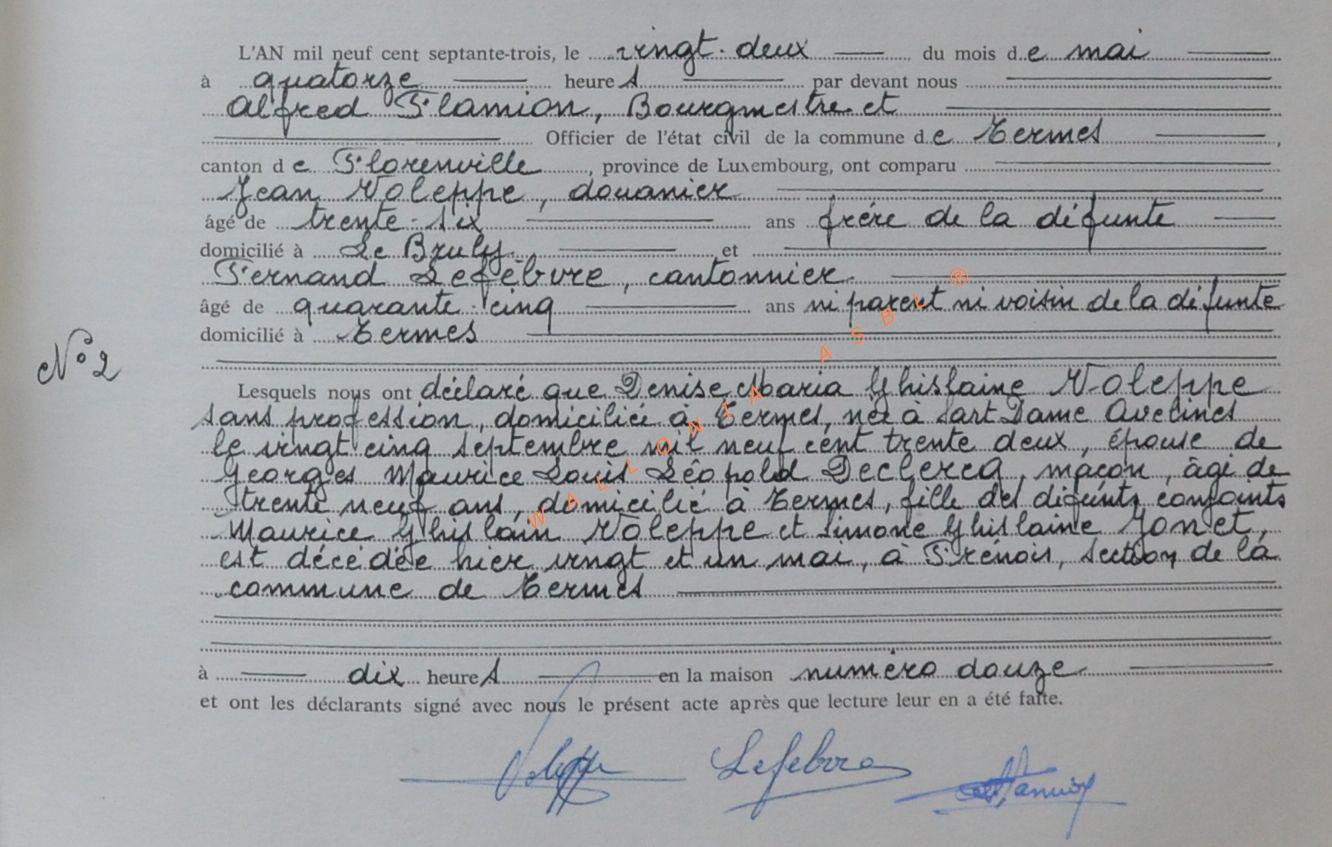 L'AN mil neuf cent septante-trois, le vingt-deux du mois de mai
à quatorze heures par devant nous
Alfred Flamion, Bourgmestre et
Officier de l'état civil de la commune de Termes,
canton de Florenville, province de Luxembourg, ont comparu
Jean Noleppe, douanier
âgé de trente-six ans frère de la défunte
domicilié à Le Bruly et
Fernand Lefèbvre, cantonnier
âgé de quarante-cinq ans ni parent ni voisin de la défunte
domicilié à Termes
N° 2
Lesquels nous ont déclaré que Denise Maria Ghislaine Noleppe
sans profession, domiciliée à Termes, née à Sart Dame Avelines
le vingt cinq septembre mil neuf cent trente deux, épouse de
Georges Maurice Louis Léopold Declercq, maçon, âgé de
trente neuf ans, domicilié à Termes, fille des défunts conjoints
Maurice Ghislain Noleppe et Simone Ghislaine Jonet,
est décédée hier vingt et un mai, à Frenois, section de la
commune de Termes
à dix heures en la maison numéro douze
et ont les déclarants signé avec nous le présent acte après que lecture leur en a été faite.
Noleppe Lefebvre Flamion
WALLONIA ASBL ®